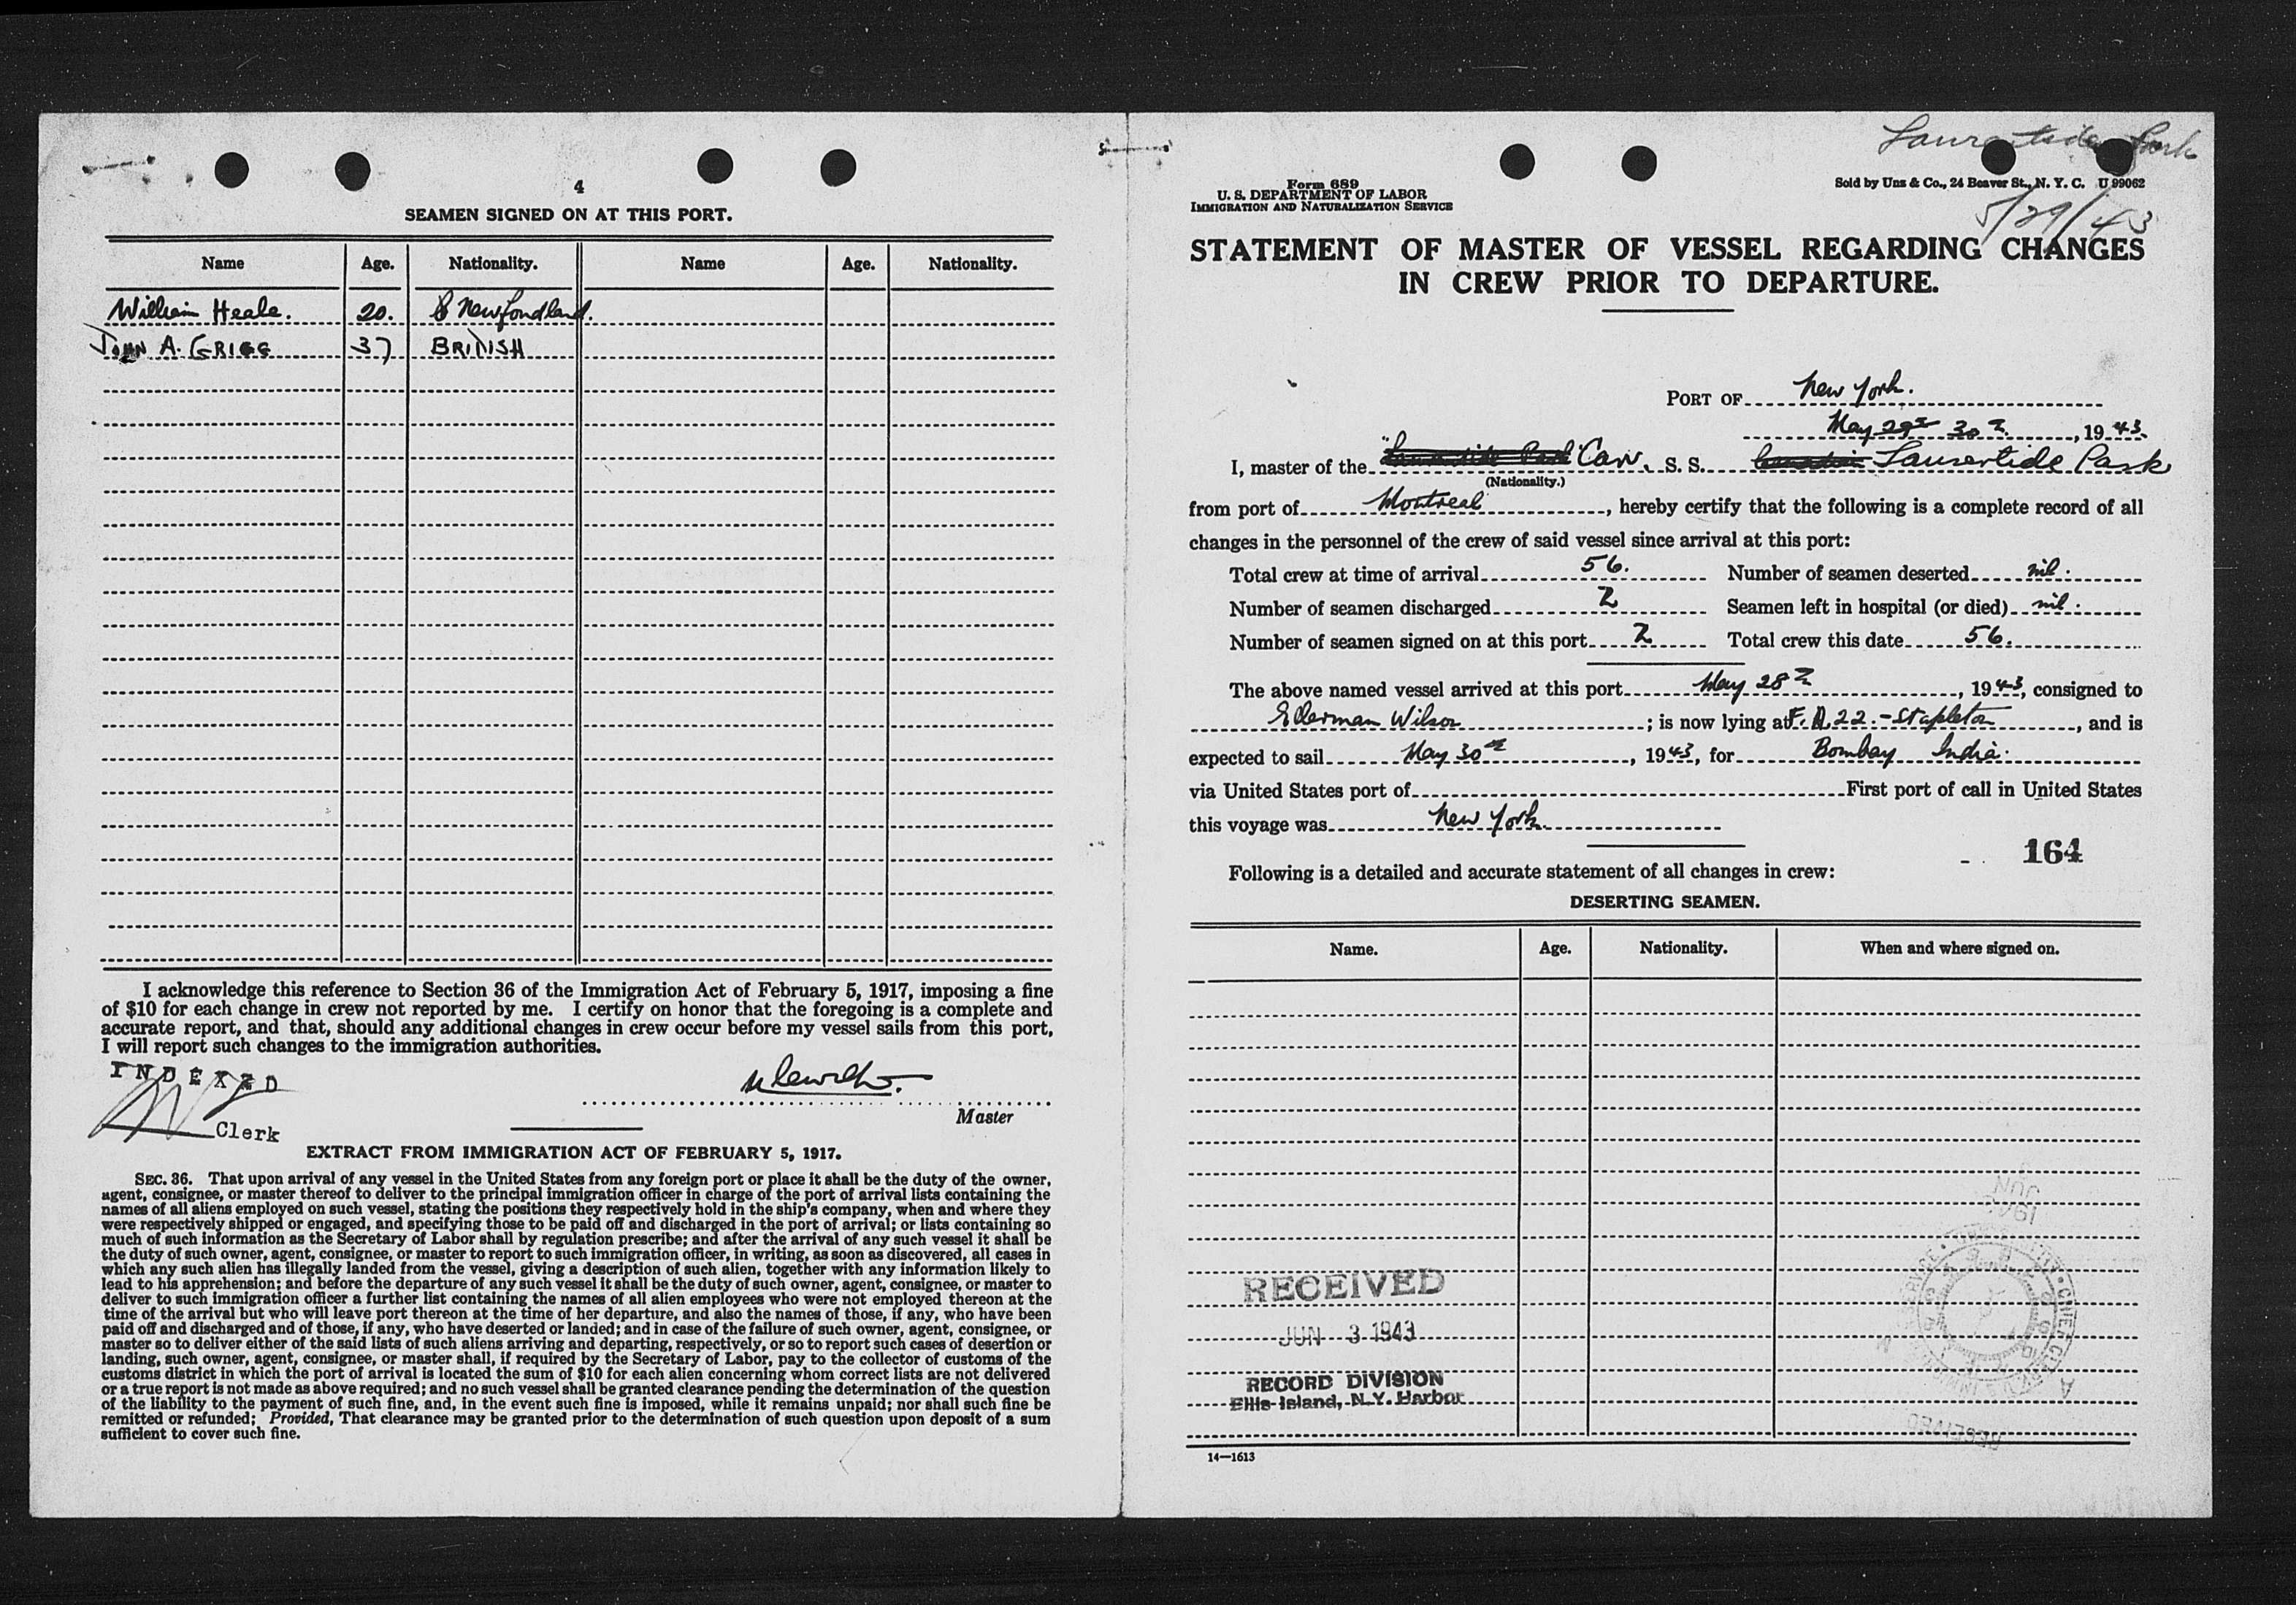 4
SEAMEN SIGNED ON AT THIS PORT.
Name Age. Nationality. Name Age. Nationality.
William Heale. 20. Newfondland.
JOHN A. GRIGG 37 BRITISH
I acknowledge this reference to Section 36 of the Immigration Act of February 5, 1917, imposing a fine
of $10 for each change in crew not reported by me. I certify on honor that the foregoing is a complete and
accurate report, and that, should any additional changes in crew occur before my vessel sails from this port,
I will report such changes to the immigration authorities.
INDEXED
Clerk
Master
EXTRACT FROM IMMIGRATION ACT OF FEBRUARY 5, 1917.
SEC. 36. That upon arrival of any vessel in the United States from any foreign port or place it shall be the duty of the owner,
agent, consignee, or master thereof to deliver to the principal immigration officer in charge of the port of arrival lists containing the
names of all aliens employed on such vessel, stating the positions they respectively hold in the ship's company, when and where they
were respectively shipped or engaged, and specifying those to be paid off and discharged in the port of arrival; or lists containing so
much of such information as the Secretary of Labor shall by regulation prescribe; and after the arrival of any such vessel it shall be
the duty of such owner, agent, consignee, or master to report to such immigration officer, in writing, as soon as discovered, all cases in
which any such alien has illegally landed from the vessel, giving a description of such alien, together with any information likely to
lead to his apprehension; and before the departure of any such vessel it shall be the duty of such owner, agent, consignee, or master to
deliver to such immigration officer a further list containing the names of all alien employees who were not employed thereon at the
time of the arrival but who will leave port thereon at the time of her departure, and also the names of those, if any, who have been
paid off and discharged and of those, if any, who have deserted or landed; and in case of the failure of such owner, agent, consignee, or
master so to deliver either of the said lists of such aliens arriving and departing, respectively, or so to report such cases of desertion or
landing, such owner, agent, consignee, or master shall, if required by the Secretary of Labor, pay to the collector of customs of the
customs district in which the port of arrival is located the sum of $10 for each alien concerning whom correct lists are not delivered
or a true report is not made as above required; and no such vessel shall be granted clearance pending the determination of the question
of the liability to the payment of such fine, and, in the event such fine is imposed, while it remains unpaid; nor shall such fine be
remitted or refunded; Provided, That clearance may be granted prior to the determination of such question upon deposit of a sum
sufficient to cover such fine.
Laurentide Park
Form 689
U. S. DEPARTMENT OF LABOR
IMMIGRATION AND NATURALIZATION SERVICE
Sold by Uns & Co., 24 Beaver St., N. Y. C. U 99062
5/29/43
STATEMENT OF MASTER OF VESSEL REGARDING CHANGES
IN CREW PRIOR TO DEPARTURE.
PORT OF New York.
May 29th 30th, 1943.
I, master of the Laurentide Park Can. S. S. Canadian Laurentide Park
(Nationality.)
from port of Montreal, hereby certify that the following is a complete record of all
changes in the personnel of the crew of said vessel since arrival at this port:
Total crew at time of arrival 56. Number of seamen deserted nil.
Number of seamen discharged 2 Seamen left in hospital (or died) nil.
Number of seamen signed on at this port 2 Total crew this date 56.
The above named vessel arrived at this port May 28th, 1943, consigned to
Ellerman Wilson; is now lying at F.A. 22.-Stapleton, and is
expected to sail May 30th, 1943, for Bombay India.
via United States port of First port of call in United States
this voyage was New York.
164
Following is a detailed and accurate statement of all changes in crew:
DESERTING SEAMEN.
Name. Age. Nationality. When and where signed on.
RECEIVED
JUN 3 1943
RECORD DIVISION
Ellis Island, N.Y. Harbor
14—1613